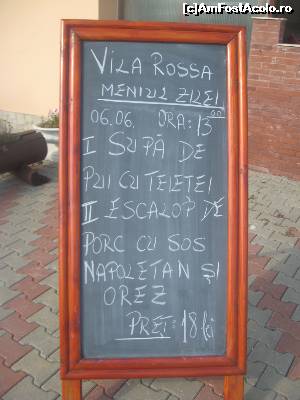 (c)AmFostAcolo.ro
VILA ROSSA
MENIUL ZILEI
06.06. ORA: 13⁰⁰
I SUPĂ DE
PUI CU TEIEŢEI
II ESCALOP DE
PORC CU SOS
NAPOLETAN ŞI
OREZ
PREŢ: 18 lei